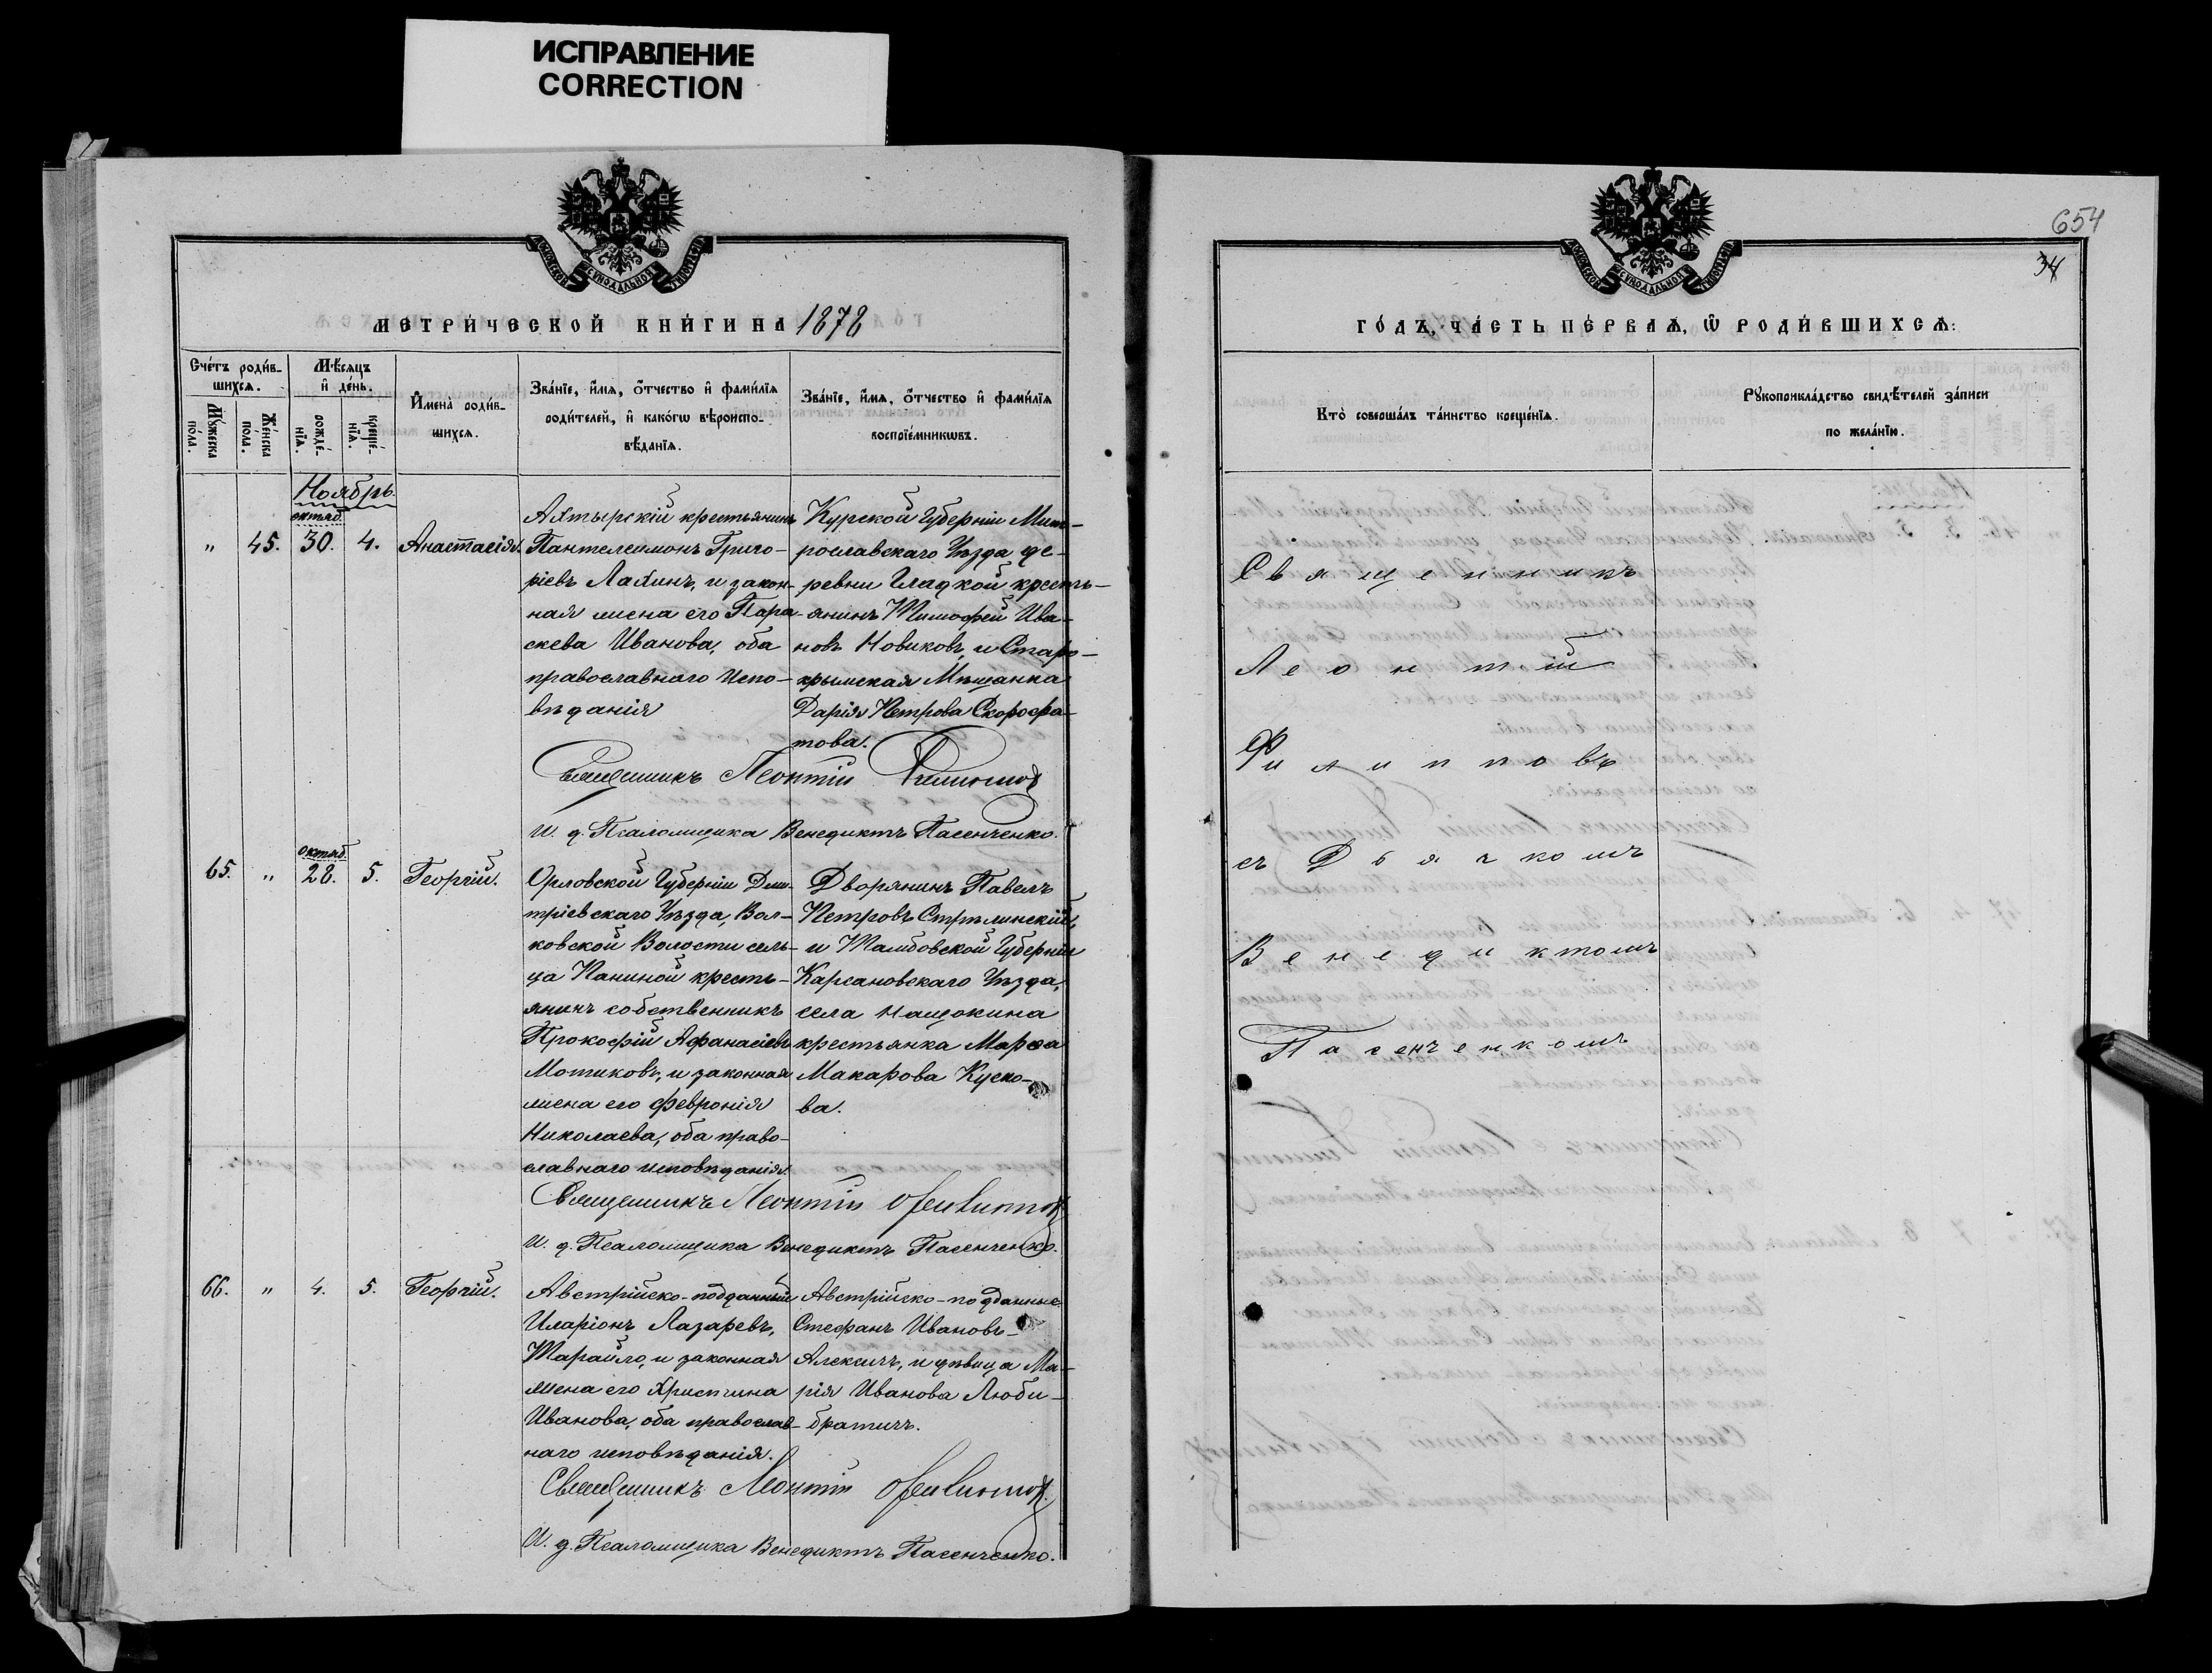 ИСПРАВЛЕНИЕ
CORRECTION
МОСКОВСКОЙ СѴНОДАЛЬНОЙ ТИПОГРАФІИ
МЕТРИ́ЧЕСКОЙ КНИ́ГИ НА 1878
Сче́тъ роди́в-
шихсѧ.
Мѣ́сѧцъ
и҆ де́нь.
И҆мена̀ роди́в-
шихсѧ.
Зва́нїе, и҆́мѧ, о҆́тчество и҆ фами́лїѧ
роди́телей, и҆ како́гѡ вѣроиспо-
вѣ́данїѧ.
Зва́нїе, и҆́мѧ, о҆́тчество и҆ фами́лїѧ
воспрїе́мникѡвъ.
Мꙋ́жеска
по́ла.
Же́нска
по́ла.
рожде́-
нїѧ.
креще́-
нїѧ.
Ноябрь.
" 45. октяб. 30. 4. Анастасія.
Ахтырскій крестьянинъ
Пантелеимонъ Григо-
ріевъ Лахинъ, и закон-
ная жена его Пара-
скева Иванова, оба
православнаго испо-
вѣданія
Курской Губерніи Мит-
рославскаго Уѣзда де-
ревни Гладкой кресть-
янинъ Тимофей Ива-
новъ Новиковъ, и Старо-
крымская Мѣщанка
Дарія Петрова Скорофа-
това.
Священникъ Леонтій Филиппов
И. д. Псаломщика Венедиктъ Пасенченко.
65. " октяб. 28. 5. Георгій.
Орловской Губерніи Дми-
тріевскаго Уѣзда, Вол-
ковской Волости сель-
ца Паниной кресть-
янинъ собственникъ
Прокофій Афанасіевъ
Мотиковъ, и законная
жена его Февронія
Николаева, оба право-
славнаго исповѣданія.
Дворянинъ Павелъ
Петровъ Стрѣлинскій,
и Тамбовской Губерніи
Карсановскаго Уѣзда,
села Нащокина
крестьянка Марѳа
Макарова Куско-
ва.
Священникъ Леонтій Филиппов
И. д. Псаломщика Венедиктъ Пасенченко.
66. " 4. 5. Георгій.
Австрійско-подданный
Иларіонъ Лазаревъ,
Тарайло, и законная
жена его Христина
Иванова, оба православ-
наго исповѣданія.
Австрійско-подданные
Стефанъ Ивановъ-
Алексичъ, и дѣвица Ма-
рія Иванова Люби-
братичъ.
Священникъ Леонтій Филиппов.
И. д. Псаломщика Венедиктъ Пасенченко.
654
34
МОСКОВСКОЙ СѴНОДАЛЬНОЙ ТИПОГРАФІИ
ГО́ДЪ, ЧА́СТЬ ПЕ́РВАѦ, Ѽ РОДИ́ВШИХСѦ:
Кто̀ соверша́лъ та́инство креще́нїѧ.
Рꙋкоприкла́дство свидѣ́телей за́писи
по жела́нїю.
Священникъ
Леонтій
Филипповъ
съ Дьячкомъ
Венедиктомъ
Пасенченкомъ